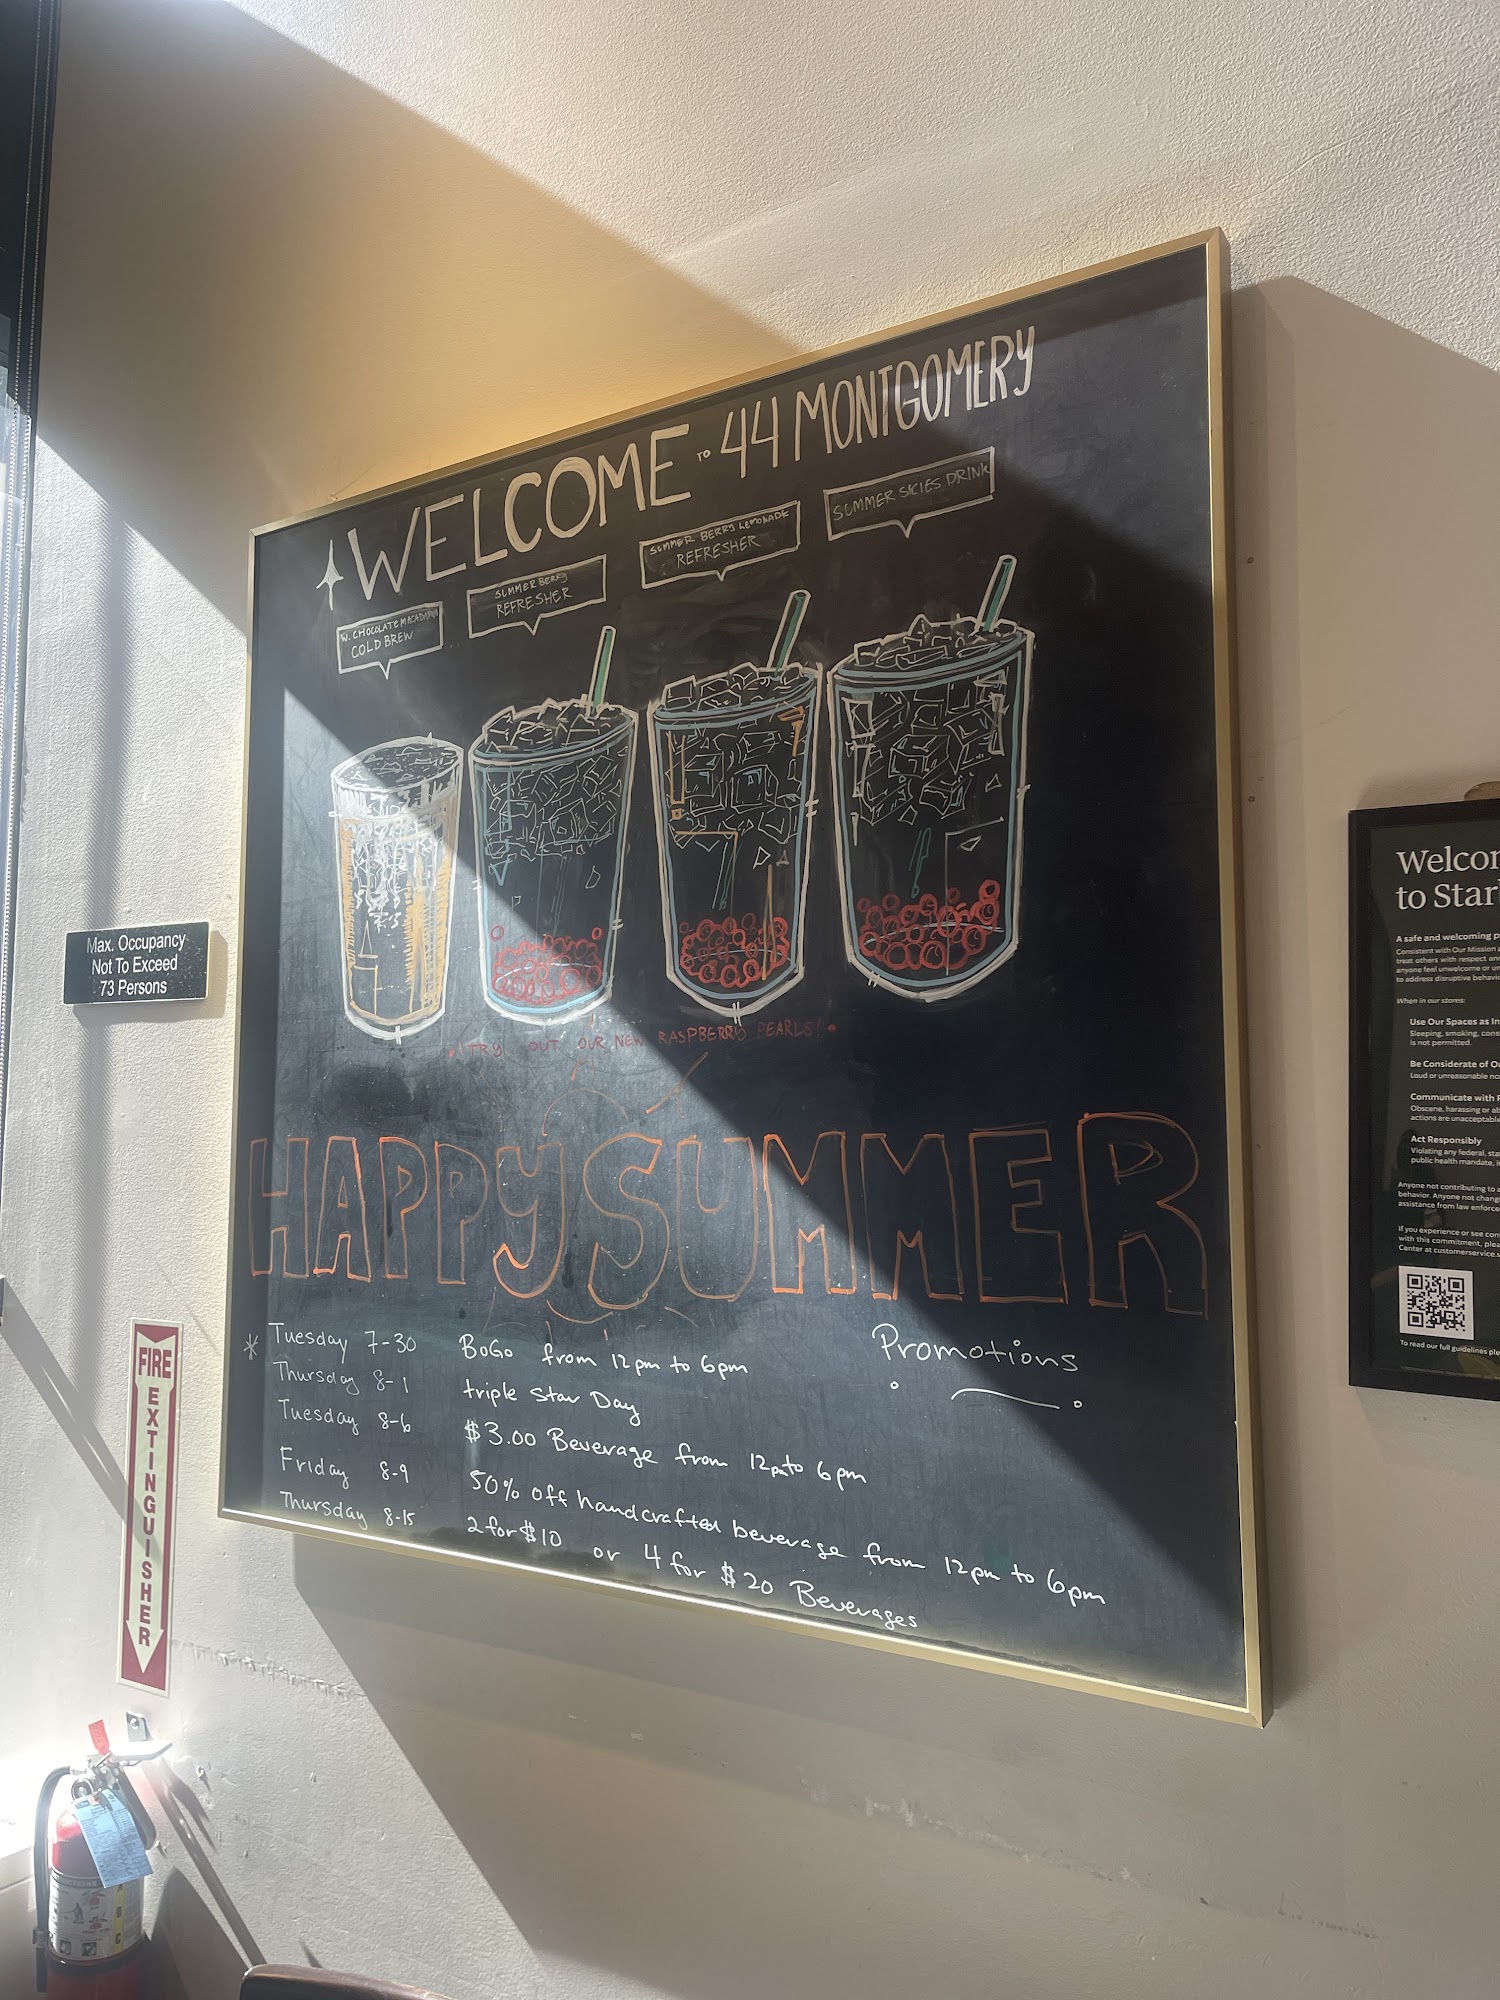 WELCOME TO 44 MONTGOMERY
W. CHOCOLATE MACADAMIA
COLD BREW
SUMMER BERRY
REFRESHER
SUMMER BERRY LEMONADE
REFRESHER
SUMMER SKIES DRINK
! TRY OUT OUR NEW RASPBERRY PEARLS!
HAPPY SUMMER
Promotions
* Tuesday 7-30 BoGo from 12pm to 6pm
Thursday 8-1 triple Star Day
Tuesday 8-6 $3.00 Beverage from 12pm to 6pm
Friday 8-9 50% off handcrafted beverage from 12pm to 6pm
Thursday 8-15 2 for $10 or 4 for $20 Beverages
Max. Occupancy
Not To Exceed
73 Persons
FIRE
EXTINGUISHER
Welcom
to Star
A safe and welcoming p
Consistent with Our Mission a
treat others with respect and
anyone feel unwelcome or un
to address disruptive behavio
When in our stores:
Use Our Spaces as In
Sleeping, smoking, cons
is not permitted.
Be Considerate of O
Loud or unreasonable no
Communicate with R
Obscene, harassing or ab
actions are unacceptable
Act Responsibly
Violating any federal, sta
public health mandate, i
Anyone not contributing to a
behavior. Anyone not chang
assistance from law enforce
If you experience or see con
with this commitment, plea
Center at customerservice.s
To read our full guidelines ple